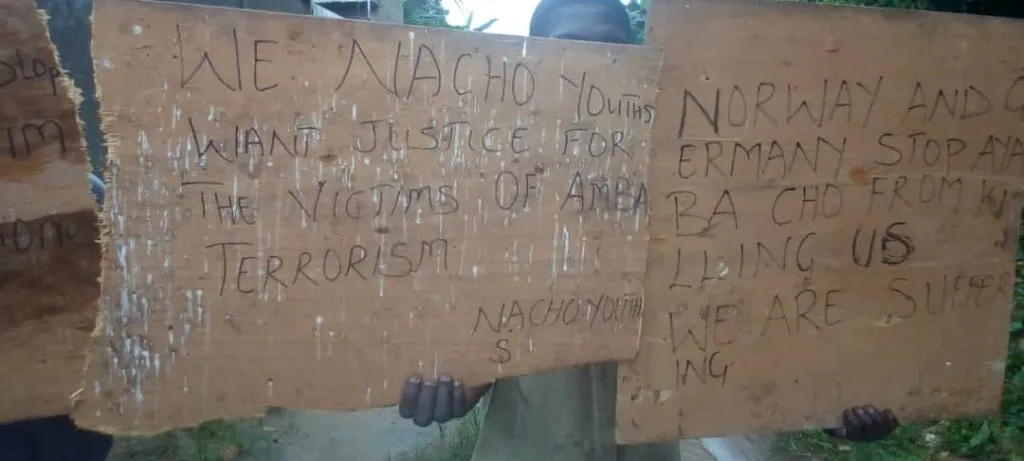 Stop
WE NACHO YOUTHS
WANT JUSTICE FOR
THE VICTIMS OF AMBA
TERRORISM
NACHO YOUTH
S
NORWAY AND G
ERMANY STOP AYA
BA CHO FROM KI
LLING US
WE ARE SUFFER
ING